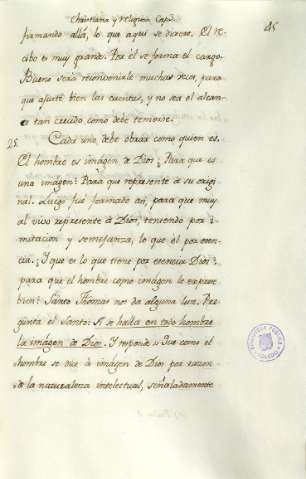 Christiana y religiosa Cap.º
45
firmando allá, lo que aquí se vacea. El re-
cibo es muy grande. Por él se forma el cargo.
Bueno será reconvenirle muchas veces, para
que ajuste bien las cuentas, y no sea el alcan-
ce tan crecido como debe temerse.
25. Cada uno debe obrar como quien es.
El hombre es imágen de Dios. ¿Para que es
una imágen? Para que represente á su origi-
nal. Luego fué formado así, para que muy
al vivo represente á Dios, teniendo por i-
mitacion y semejanza, lo que él por esen-
cia. ¿Y que es lo que tiene por esencia Dios?
para que el hombre como imágen le expre
bien? Santo Thomás nos da alguna luz. Pre-
gunta el Santo: Si se halla en todo hombre
la imágen de Dios. Y responde: Que como el
hombre se dice á imágen de Dios por razon
de la naturaleza intelectual, señaladamente
BIBLIOTECA PUBLICA
TOLEDO